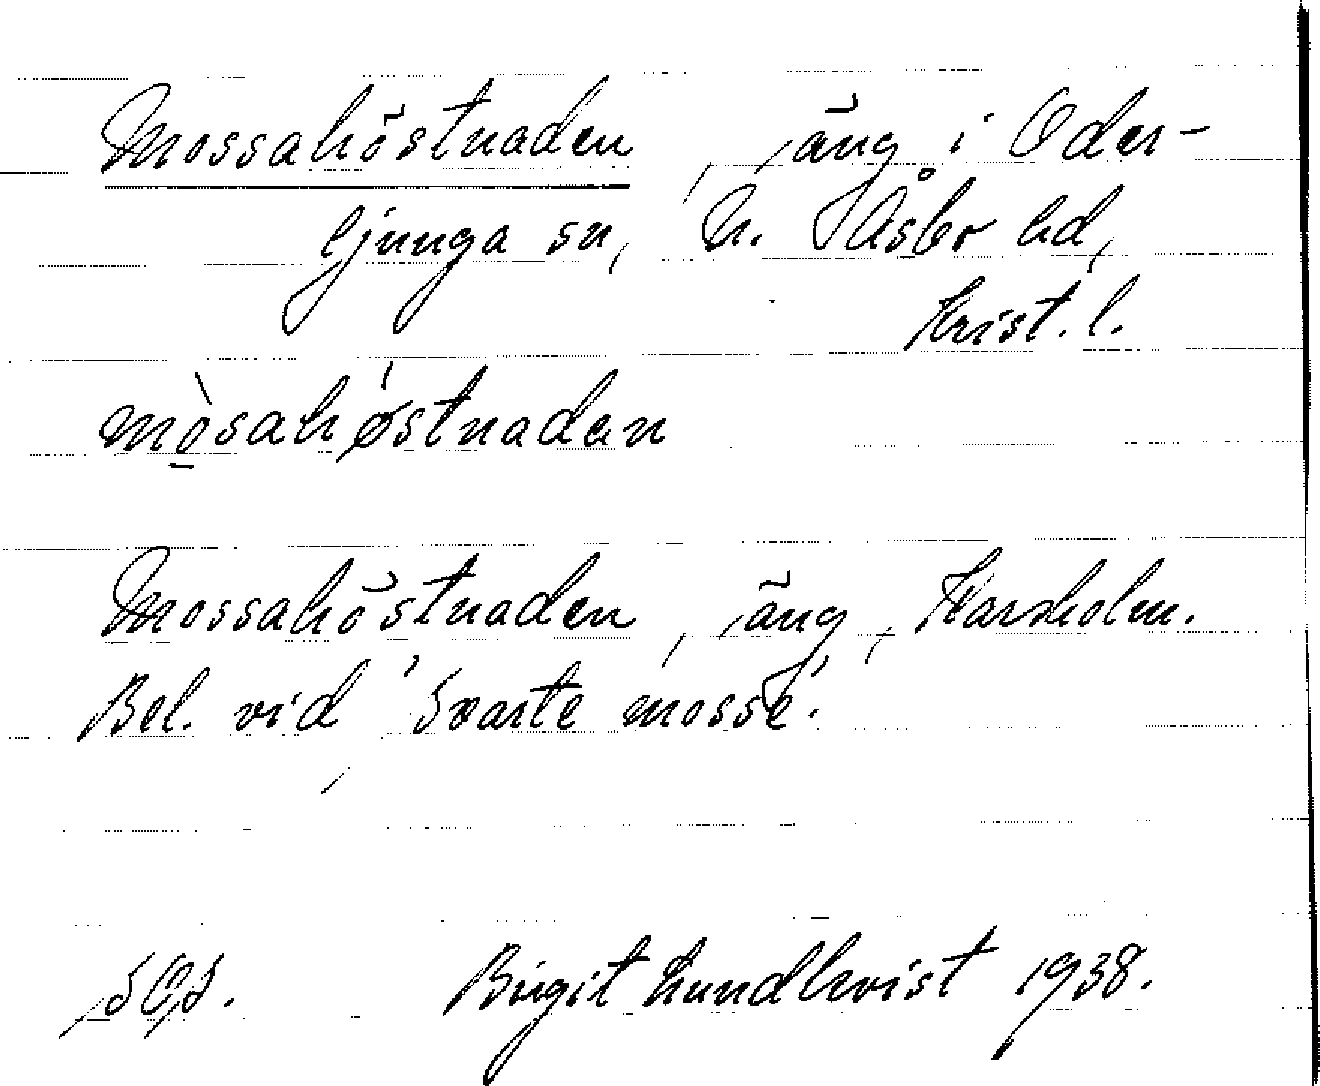 Mossahöstnaden, äng i Oder-
ljunga sn, N. Åsbo hd,
Krist. l.
mòsahøstnadan
Mossahöstnaden, äng, Harsholm.
Bel. vid 'Svarte mosse'.
Birgit Lundkvist 1938.